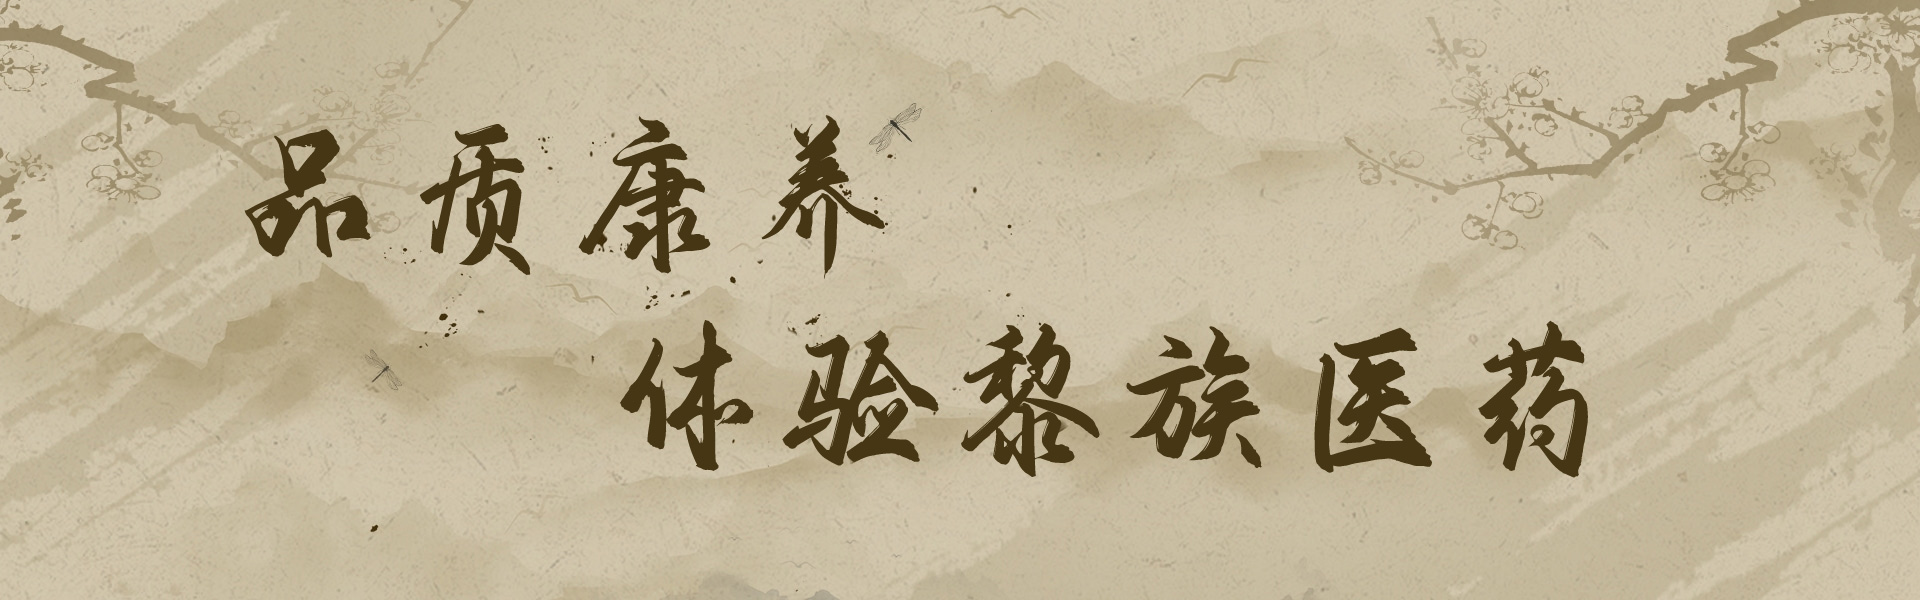 品质康养
体验黎族医药